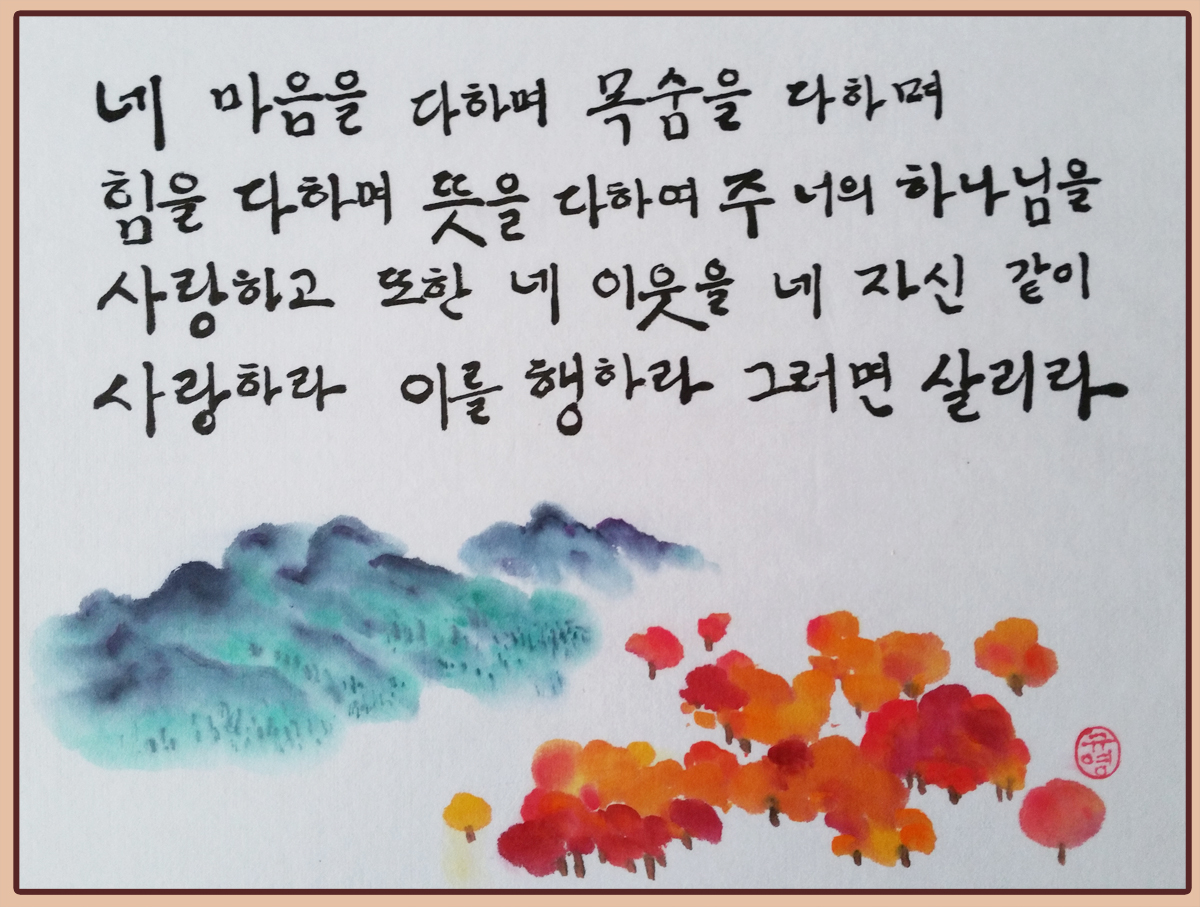 네 마음을 다하며 목숨을 다하며
힘을 다하며 뜻을 다하여 주 너의 하나님을
사랑하고 또한 네 이웃을 네 자신 같이
사랑하라 이를 행하라 그러면 살리라